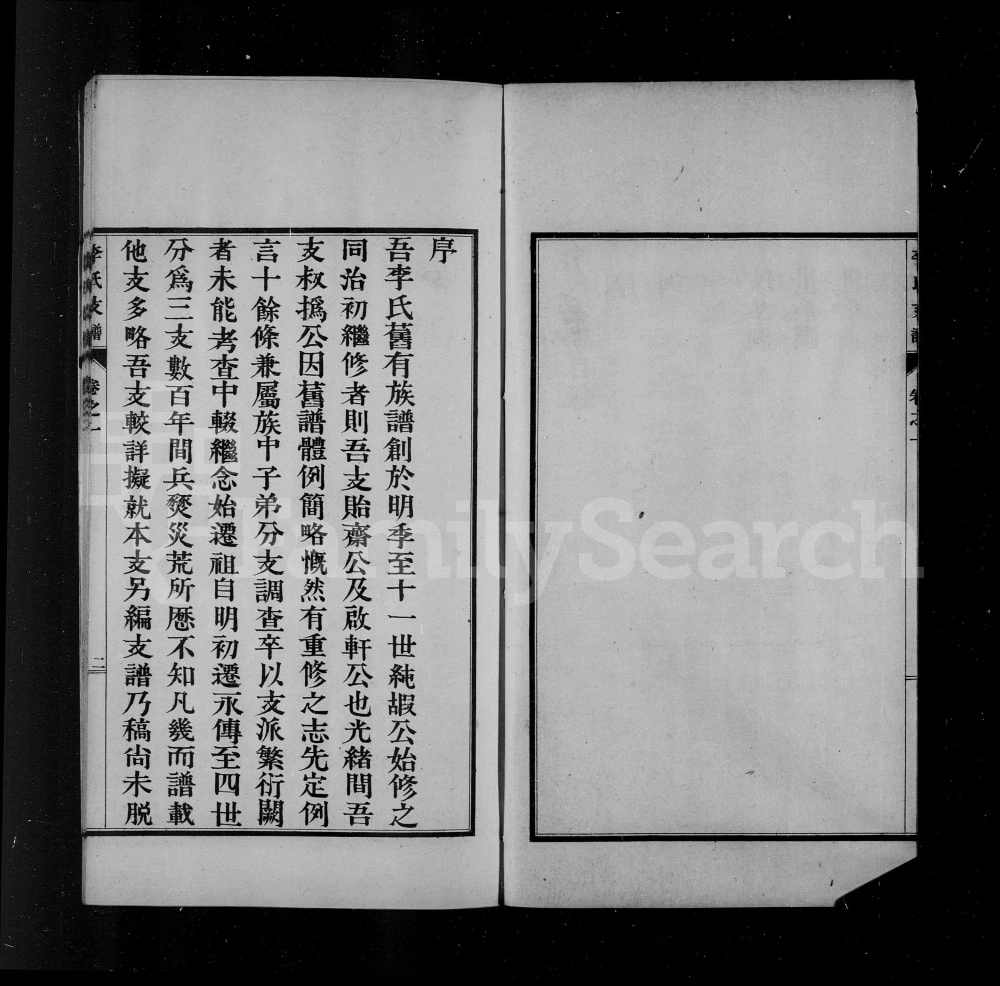 李氏支譜
卷之一
序
吾李氏舊有族譜創於明季至十一世純嘏公始修之
同治初繼修者則吾支貽齋公及啟軒公也光緒間吾
支叔撝公因舊譜體例簡略慨然有重修之志先定例
言十餘條兼屬族中子弟分支調查卒以支派繁衍闕
者未能考查中輟繼念始遷祖自明初遷永傳至四世
分爲三支數百年間兵燹災荒所歷不知凡幾而譜載
他支多略吾支較詳擬就本支另編支譜乃稿尙未脫
李氏支譜
卷之一
二
FamilySearch